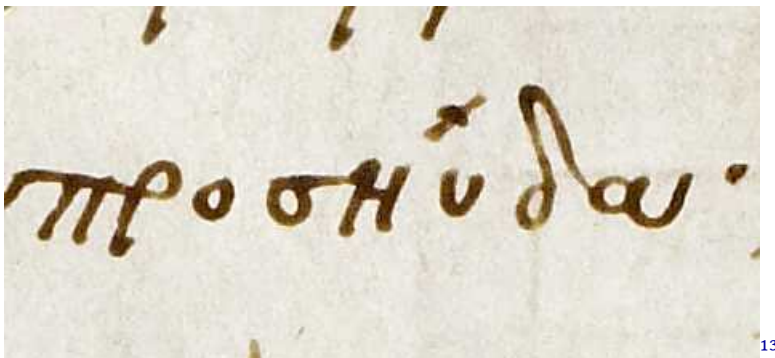 προσηύδαι·
13